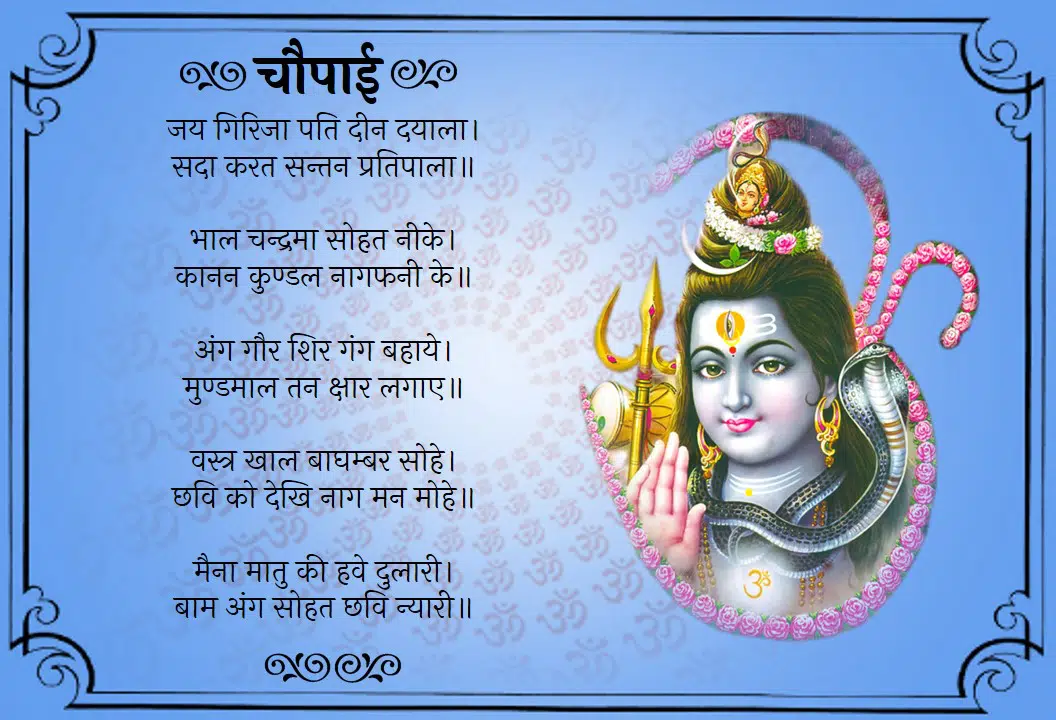 चौपाई
जय गिरिजा पति दीन दयाला।
सदा करत सन्तन प्रतिपाला॥
भाल चन्द्रमा सोहत नीके।
कानन कुण्डल नागफनी के॥
अंग गौर शिर गंग बहाये।
मुण्डमाल तन क्षार लगाए॥
वस्त्र खाल बाघम्बर सोहे।
छवि को देखि नाग मन मोहे॥
मैना मातु की हवे दुलारी।
बाम अंग सोहत छवि न्यारी॥
ॐ